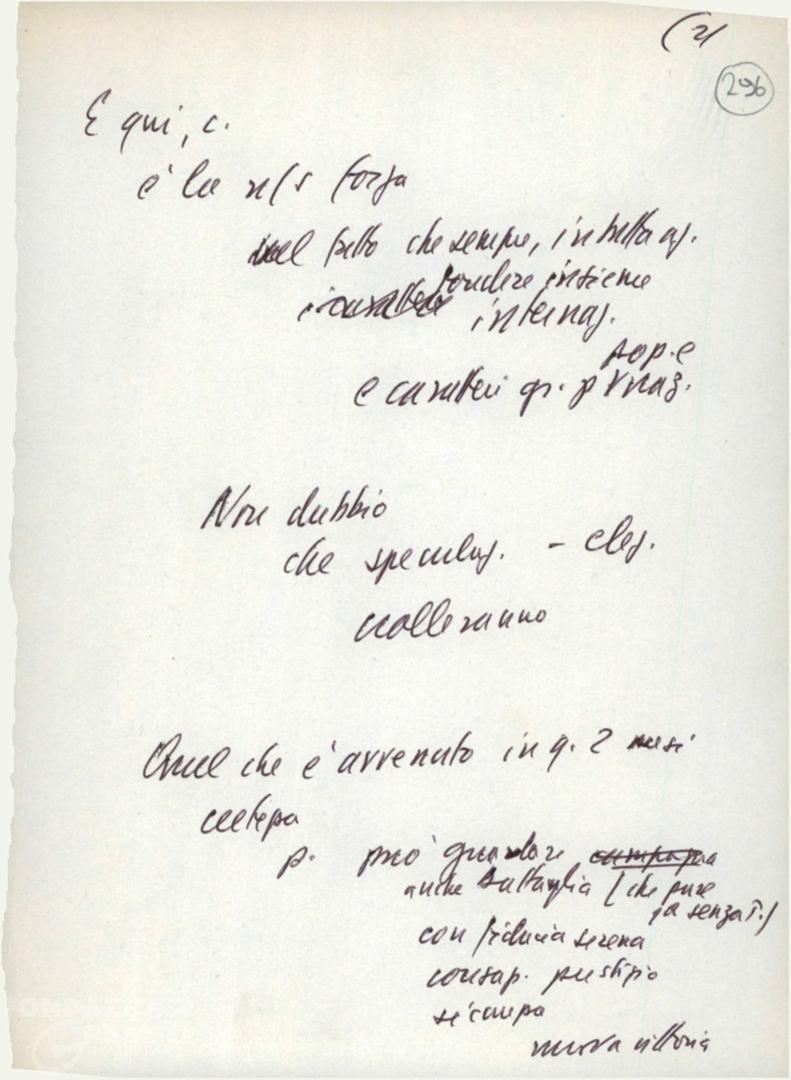 (2)
296
E qui, c.
è la n/s forza
nel fatto che sempre, in tutta az.
fondere insieme
i caratteri internaz.
pop. e
e caratteri gr. p naz.
Non dubbio
che speculaz. - clez.
crolleranno
Quel che è avvenuto in q. 2 mesi
p. può guardare campagna
anche battaglia (che pure
senza T.)
con fiducia serena
consap. prestigio
nuova vittoria